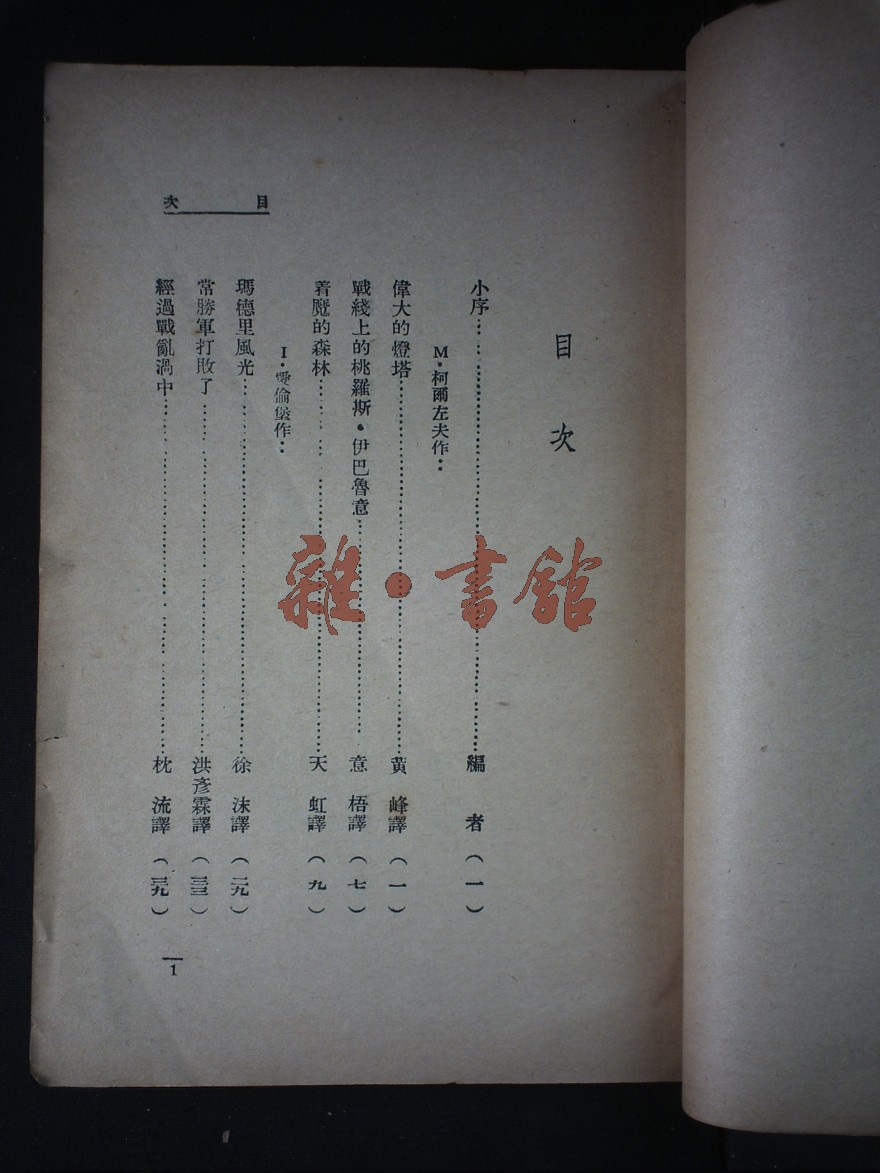 目次
目次
小序……………………編者（一）
M·柯爾左夫作：
偉大的燈塔……………………黃峰譯（一）
戰綫上的桃羅斯·伊巴魯意……………………意梧譯（七）
着魔的森林……………………天虹譯（九）
I·愛倫堡作：
瑪德里風光……………………徐沫譯（二九）
常勝軍打敗了……………………洪彥霖譯（三三）
經過戰亂渦中……………………枕流譯（三九）
1
雜·書館